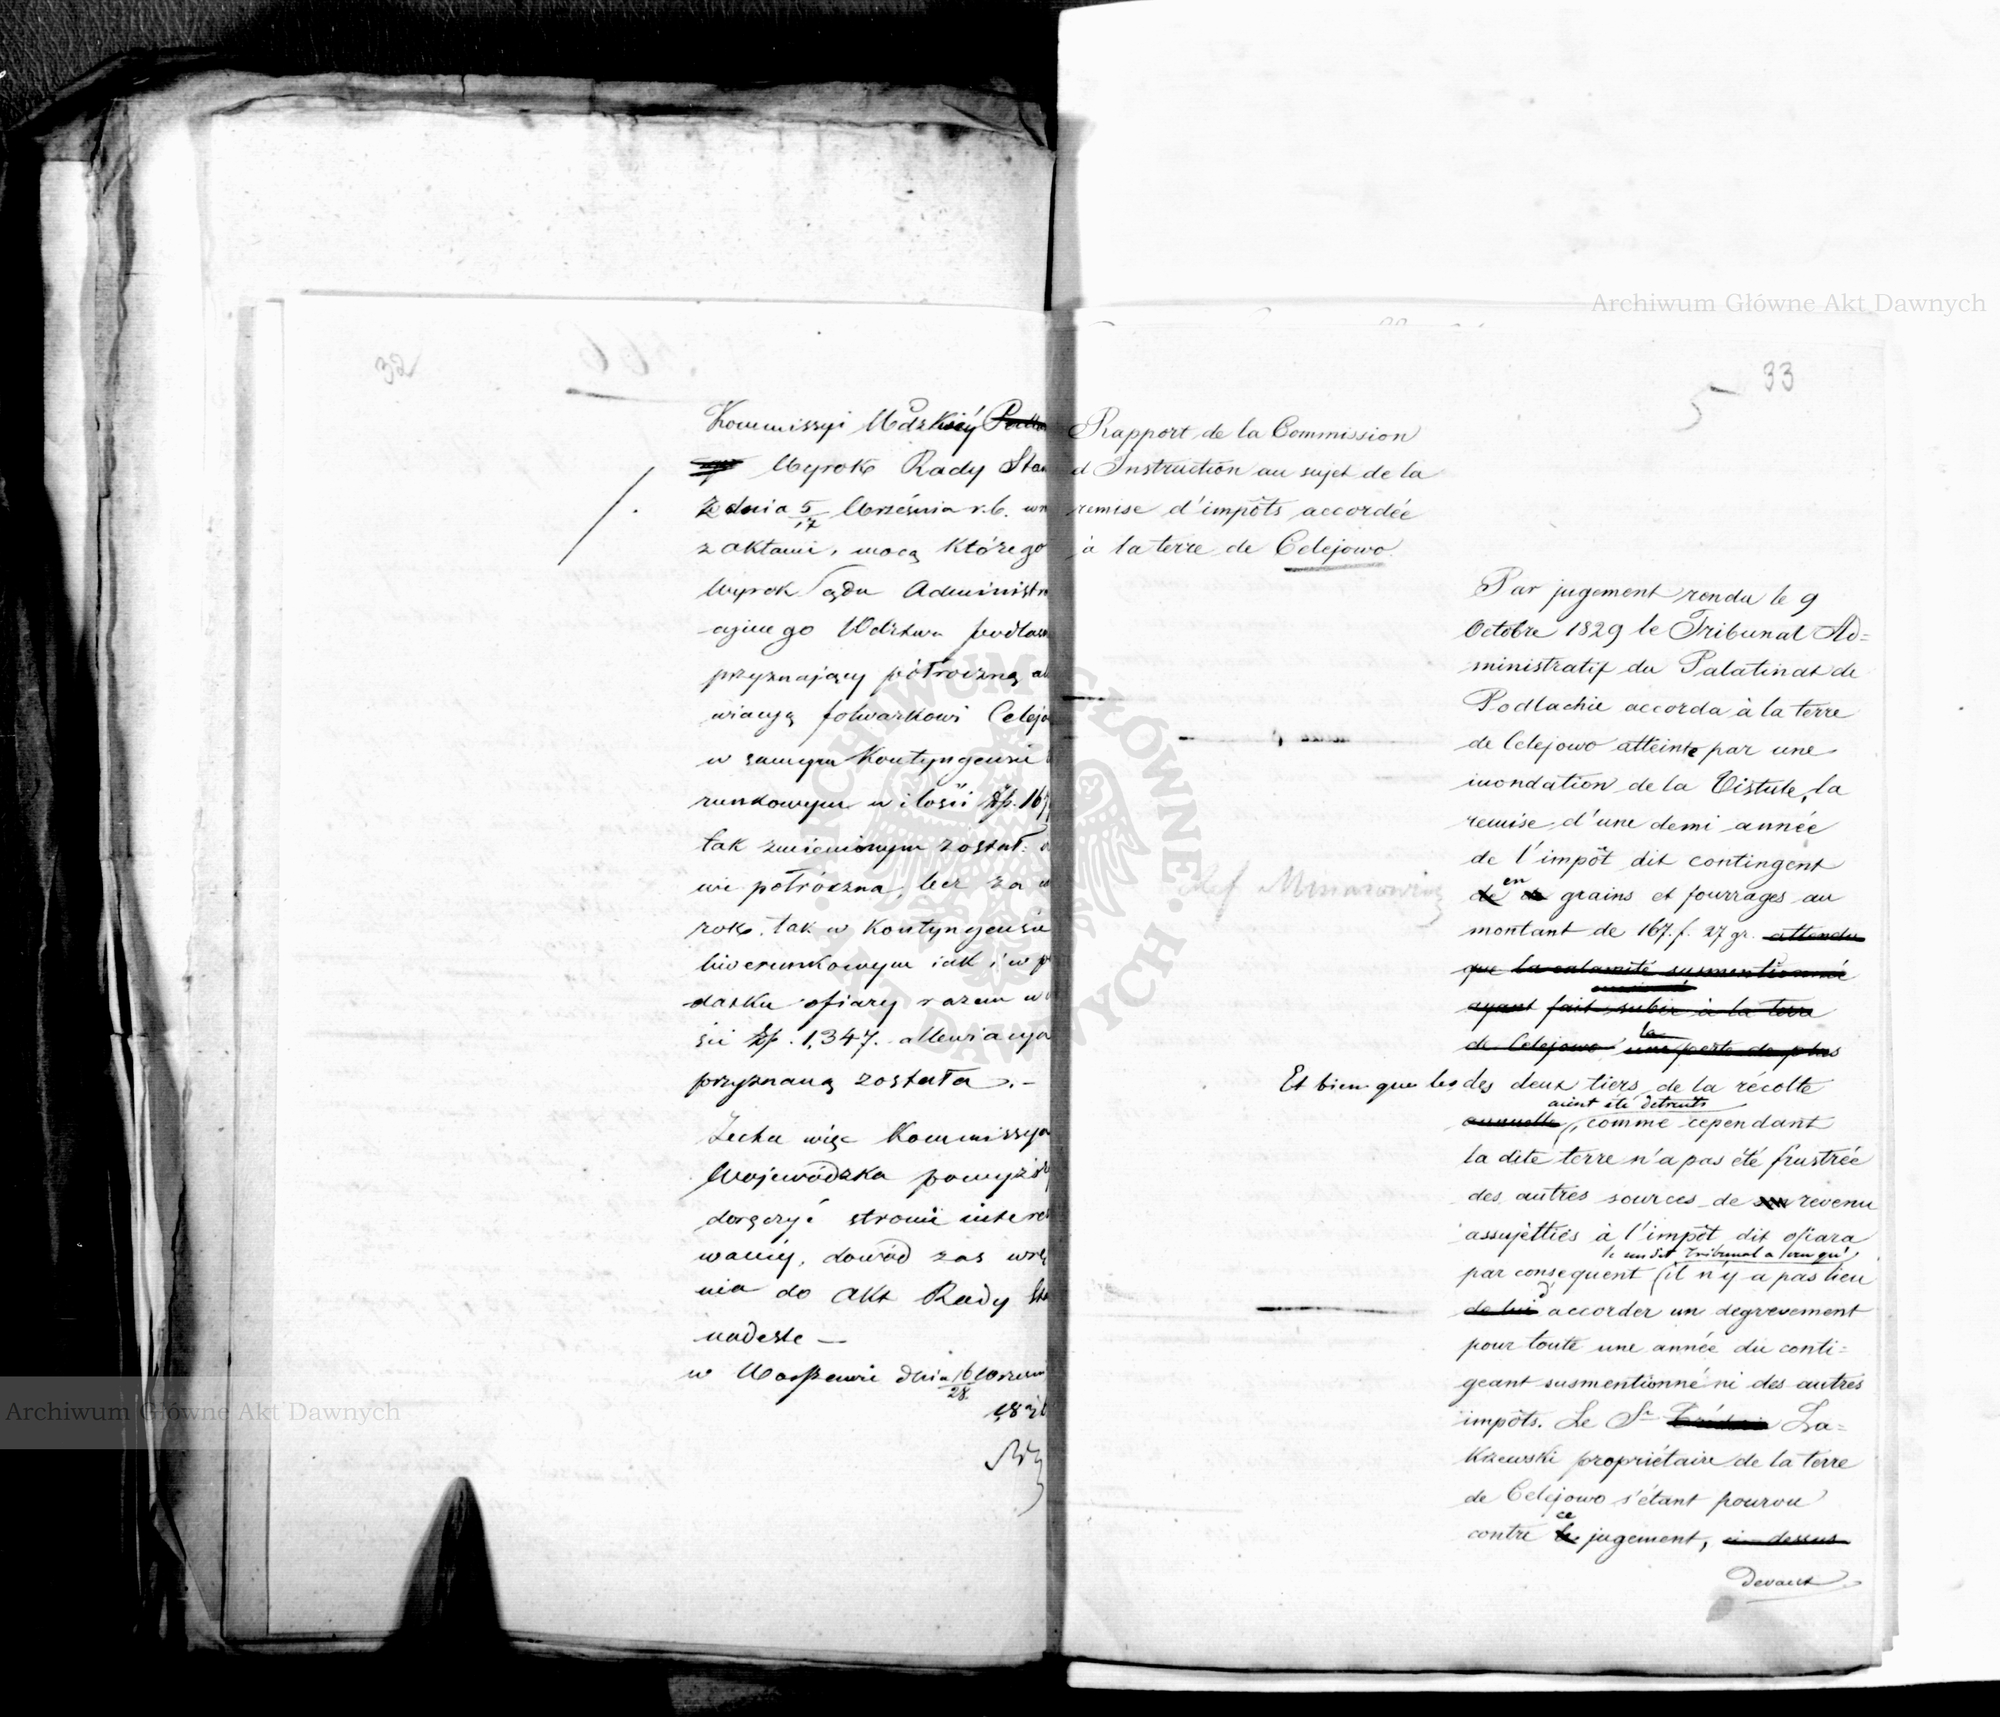 32
Kommissyi Wdzkiéy
Wyrok Rady Stan
z dnia 5/17 Września r.b. wr
z aktami, mocą którego
wyrok Sądu Administr
cyinego Wdztwa podlas
przyznający półroczną al
wiacyą folwarkowi Celejo
w samym Kontyngensie
runkowym w ilości Zp. 167
tak zmienionym został:
nie półroczna, lecz za
rok, tak w Kontyngensie
liwerunkowym iak i w p
datku ofiary razem w
ści Zp. 1,347. allewiacya
przyznaną została.–
Zechce więc Kommissya
Wojewódzka powyższy
doręczyć stronie intere
waney, dowód zas wrę
nia do Akt Rady Sta
nadesle —
w Warszawie dnia 16/28
183
33
5
Rapport de la Commission
d'Instruction au sujet de la
remise d'impôts accordée
à la terre de Celejowo.
Par jugement rendu le 9
Octobre 1829 le Tribunal Ad=
ministratif du Palatinat de
Podlachie accorda à la terre
de Celejowo atteinte par une
inondation de la Vistule, la
remise d'une demi année
de l'impôt dit contingent
de en grains et fourrages au
montant de 167 f. 27 gr. attendu
que la calamité susmentionnée
ayant fait subir à la terre
de Celejowo une la perte de plus
Et bien que les des deux tiers de la récolte
aient été detruits
annuelle, comme cependant
la dite terre n'a pas été frustrée
des autres sources de son revenu
assujetties à l'impôt dit ofiara
le susdit Tribunal a vu qu'
par consequent il n'y a pas lieu
de lui d'accorder un degrevement
pour toute une année du conti=
geant susmentionné ni des autres
impôts. Le Sr Za=
krzewski propriétaire de la terre
de Celejowo s'étant pourvu
contre le ce jugement, ci-dessus
devant
Archiwum Główne Akt Dawnych
Archiwum Główne Akt Dawnych
ARCHIWUM GŁÓWNE AKT DAWNYCH